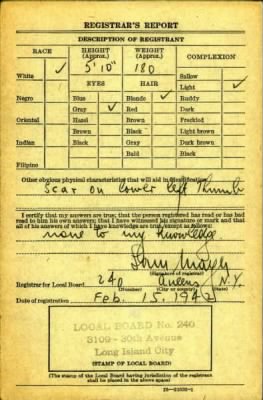 REGISTRAR'S REPORT
DESCRIPTION OF REGISTRANT
RACE
HEIGHT (Approx.)
WEIGHT (Approx.)
COMPLEXION
White ✓
5' 10"
180
Sallow
EYES
HAIR
Light ✓
Negro
Blue
Blonde ✓
Ruddy
Gray ✓
Red
Dark
Oriental
Hazel
Brown
Freckled
Brown
Black
Light brown
Indian
Black
Gray
Dark brown
Bald
Black
Filipino
Other obvious physical characteristics that will aid in identification
Scar on lower left Thumb
I certify that my answers are true; that the person registered has read or has had
read to him his own answers; that I have witnessed his signature or mark and that
all of his answers of which I have knowledge are true, except as follows:
none to my knowledge
(Signature of registrar)
Registrar for Local Board 240 Queens N.Y.
(Number) (City or county) (State)
Date of registration Feb. 15, 1942
LOCAL BOARD No. 240
3109-30th Avenue
Long Island City
(STAMP OF LOCAL BOARD)
(The stamp of the Local Board having jurisdiction of the registrant
shall be placed in the above space)